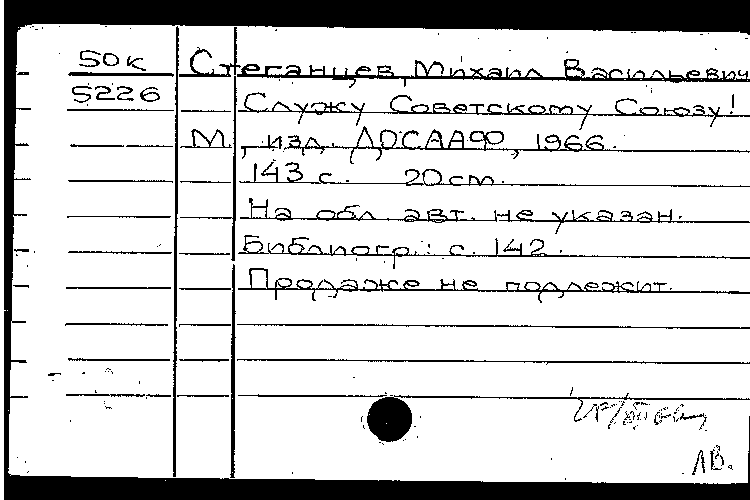 50к Стеганцев, Михаил Васильевич
S226 Служу Советскому Союзу!
М., изд. ДОСААФ, 1966.
143 с. 20 cm.
На обл. авт. не указан.
Библиогр.: с. 142.
Продаже не подлежит.
ЛВ.